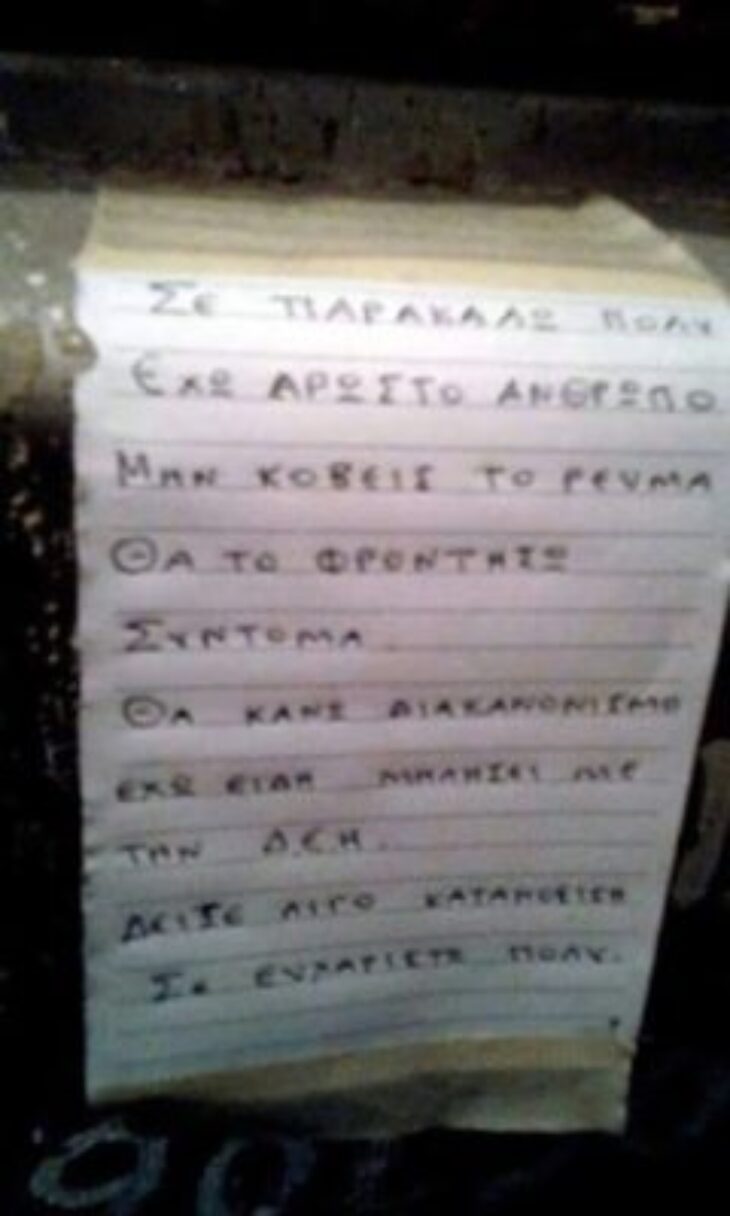 Σε ΠΑΡΑΚΑΛΩ ΠΟΛΥ
ΕΧΩ ΑΡΩΣΤΟ ΑΝΘΡΩΠΟ
ΜΗΝ ΚΟΒΕΙΣ ΤΟ ΡΕΥΜΑ
ΘΑ ΤΟ ΦΡΟΝΤΗΣΩ
ΣΥΝΤΟΜΑ.
ΘΑ ΚΑΝΩ ΔΙΑΚΑΝΟΝΙΣΜΟ
ΕΧΩ ΕΙΔΗ ΜΗΛΗΣΕΙ ΜΕ
ΤΗΝ Δ.Ε.Η.
ΔΕΙΞΕ ΛΙΓΟ
Σε ΕΥΧΑΡΙΣΤΩ ΠΟΛΥ.